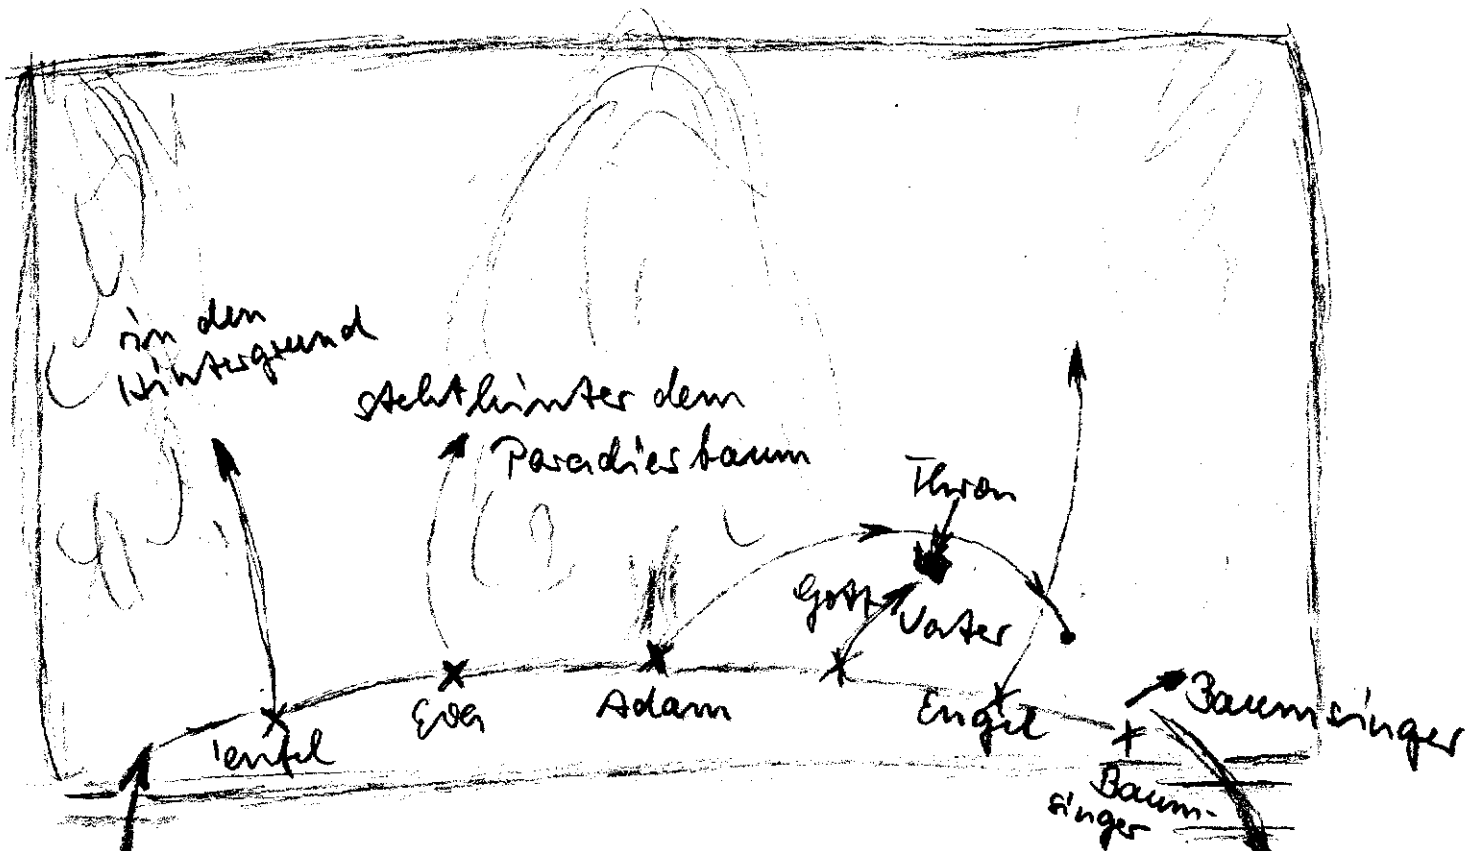 in den
Hintergrund
steht hinter dem
Paradiesbaum
Thron
Gott Vater
Teufel
Eva
Adam
Engel
Baumsinger
Baum-
singer